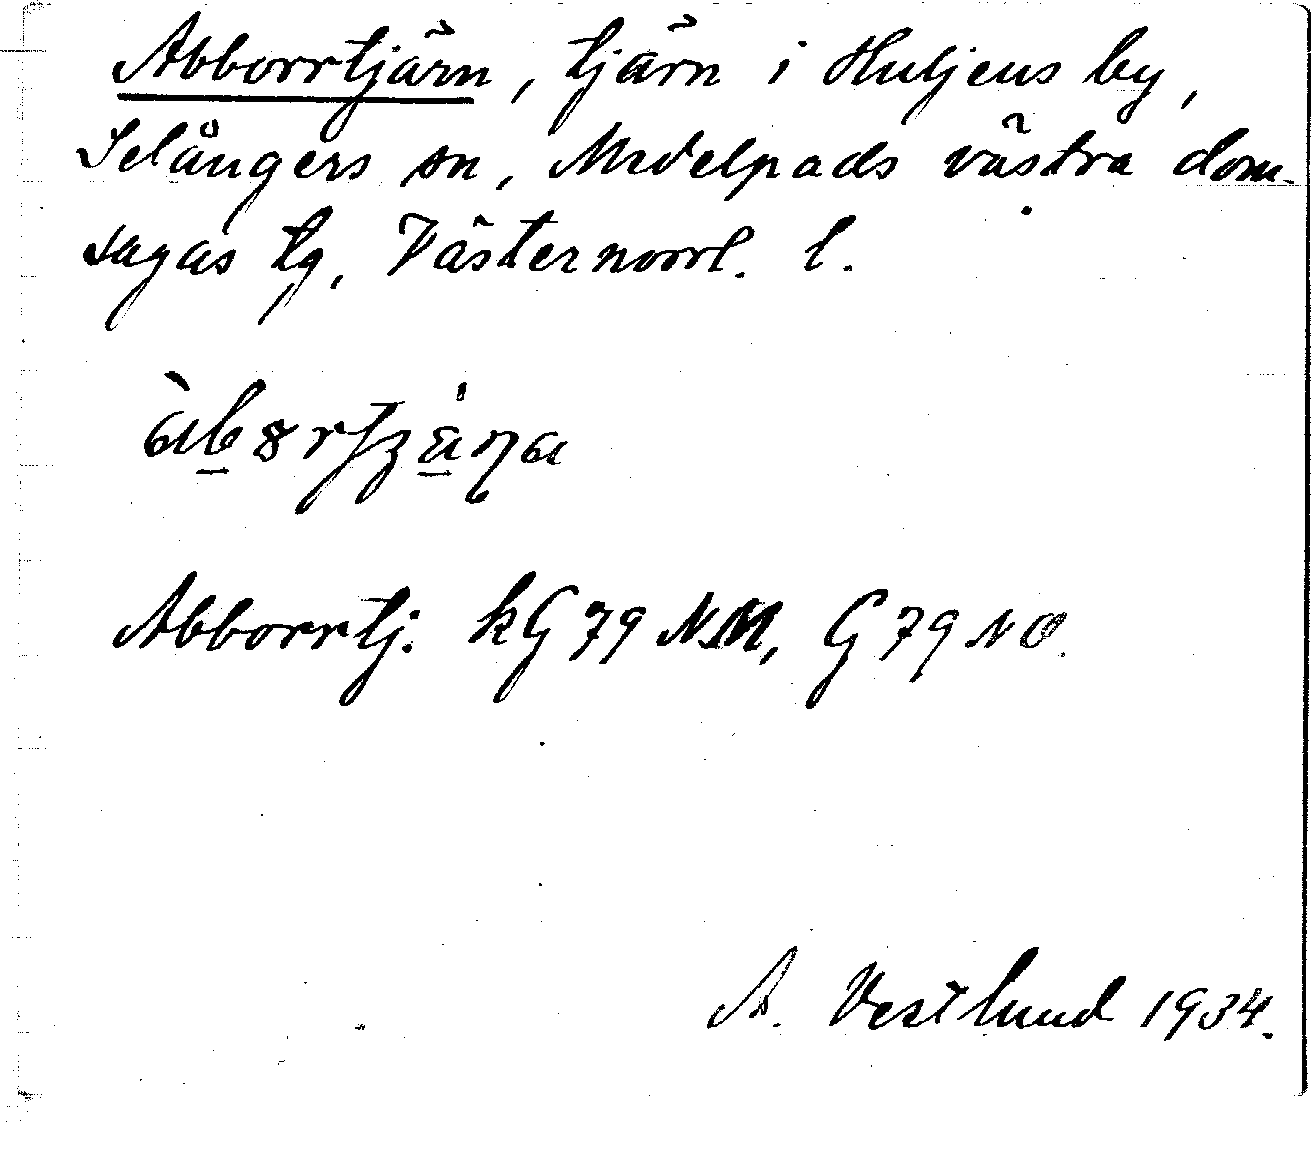 Abborrtjärn, tjärn i Huljens by,
Selångers sn, Medelpads västra dom-
sagas tg, Västernorrl. l.
Abborrtj. kG79NM, G79NO.
A. Vestlund 1934.